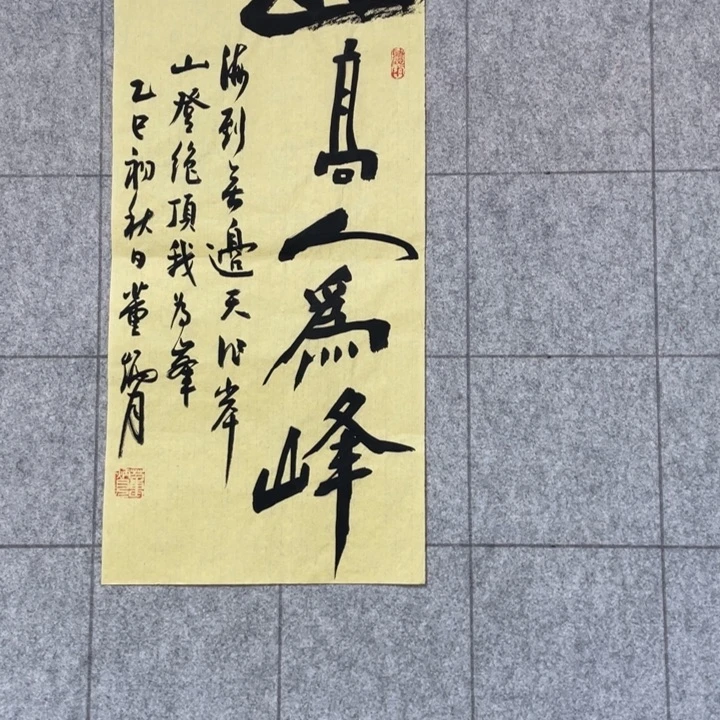 高人為峰
海到無邊天作岸
山登絶頂我為峯
乙巳初秋日董